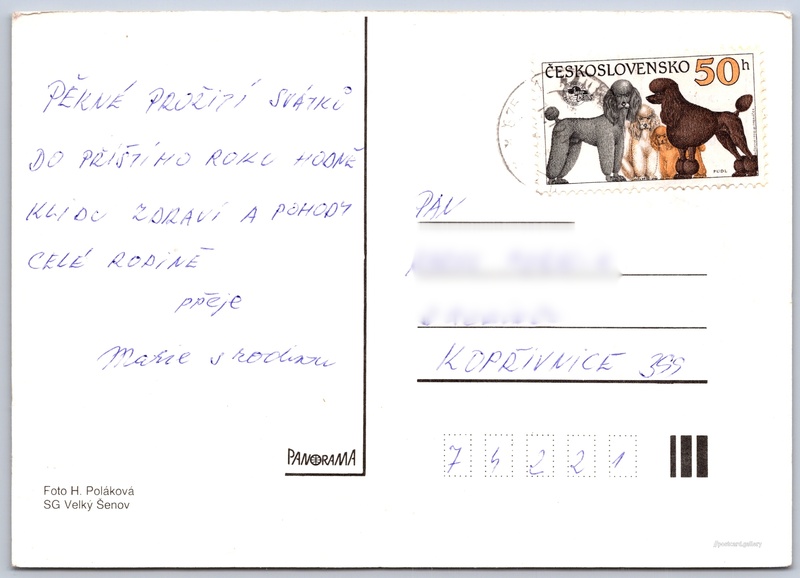 PĚKNÉ PROŽITÍ SVÁTKŮ
DO PŘÍŠTÍHO ROKU HODNĚ
KLIDU ZDRAVÍ A POHODY
CELÉ RODINĚ
přeje
Marie s rodinou
PANORAMA
Foto H. Poláková
SG Velký Šenov
ČESKOSLOVENSKO 50h
PUDL
PAN
KOPŘIVNICE 399
74221
//postcard.gallery